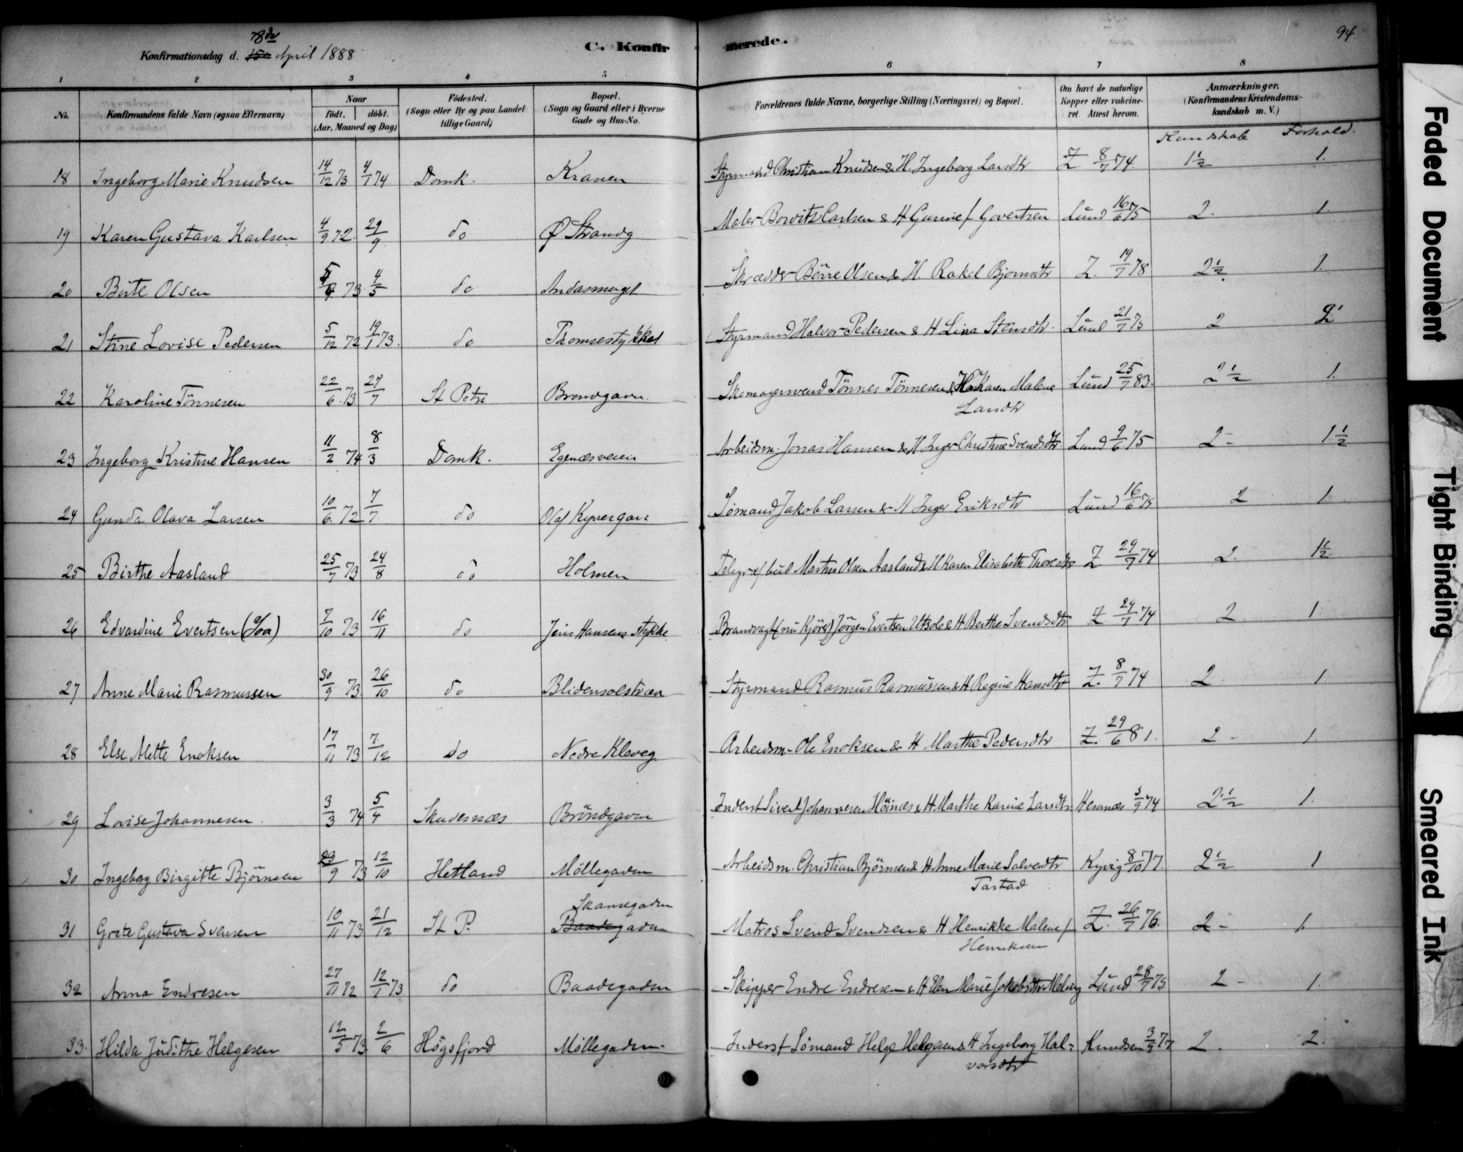 94
Konfirmationsdag d. April 1888
C. Konfir merede.
1 2 3 4 5 6 7 8
No. Konfirmandens fulde Navn (ogsaa Efternavn) Naar født. døbt. (Aar, Maaned og Dag) Fødested. (Sogn eller By og paa Landet tillige Gaard) Bopæl. (Sogn og Gaard eller i Byerne Gade og Hus-No. Forældrenes fulde Navne, borgerlige Stilling (Næringsvei) og Bopæl. Om havt de naturlige Kopper eller vaccineret. Attest herom. Anmærkninger. (Konfirmandens Kristendomskundskab m. V.)
Kundskab Forhold.
18 Ingeborg Marie Knudsen 14/12 73 4/1 74 Domk. Kranen Styrmand Christian Knudsen & H Ingeborg Larsdtr Z 8/7 74 1½ 1.
19 Karen Gustava Karlsen 4/9 72 29/9 do Ø Strandg Maler Carlsen & H Gunnef Govertsen Lund 16/6 75 2. 1
20 Berte Olsen 73 4/5 do Andasmuget Skrædder Børre Olsen & H Rakel Bjornsdtr Z. 19/7 78 2½ 1
21 Stine Lovise Pedersen 5/12 72 19/1 73. do Thomsestykket Styrmand Halvor Pedersen & H Lina Stensdtr. Lund 21/7 75 2
22 Karoline Tönnesen 22/6 73 27/7 St Petri Brøndgaden Skomagersvend Tönnes Tönnesen & H Karen Malene Larsdtr Lund 25/7 83. 2½ 1.
23 Ingeborg Kristine Hansen 11/2 74 8/3 Domk. Egenæsveien Arbeidsm. Jonas Hansen & H Inger Christine Svendsdtr Lund 9/6 75 2 - 1½
24 Gunda Olava Larsen 10/6 72 7/7 do Olaf Kyrresgade Sømand Jakob Larsen & H Inger Eriksdtr Lund 16/6 75 2 1
25 Birthe Aasland 25/7 73 24/8 do Holmen Telegrafbud Marthin Olsen Aasland & H Karen Elisabeth Thoresdtr Z 29/7 74 2. 1½
26 Edvardine Evertsen 7/10 73 16/11 do Jens Hansens Stykke Brandvagt Jörgen Evertsen & H Berthe Svendsdtr Z 29/7 74 2 1
27 Anne Marie Rasmussen 30/9 73 26/10 do Blidensolstræn Styrmand Rasmus Rasmussen & H Regine Hansdtr Z. 8/7 74 2 1
28 Else Mette Enoksen 17/11 73 7/12 do Nedre Klevеg Arbeidsm Ole Enoksen & H Marthe Pedersdtr Z. 29/6 81. 2 - 1
29 Lovise Johannesen 3/3 74 5/4 Skudesnæs Bröndgaden Inderst Sivert Johannesen & H Marthe Karine Larsdtr 5/9 74 2½ 1.
30 Ingeborg Birgitte Bjørnsen 73 12/10 Hetland Möllegaden Arbeidsm. Christian Bjørnsen & H Anne Marie Salvesdtr Tastad Kyvig 8/10 77. 2½ 1
31 Grete Gustava Svensen 10/11 73 21/12 St P. Skansegaden Baadegaden Matros Svend Svendsen & H Henrikke Malene f Henriksen Z. 26/7 76. 2 - 1
32 Anna Endresen 27/11 72 12/1 73 do Baadegaden Skipper Endre Endresen & H Elen Marie Lund 28/7 75 2 - 1.
33. Hilda Judithe Helgesen 12/5 73 2/6 Høgsfjord Möllegaden Inderst Sømand Helge Helgesen & H Ingeborg Halvorsdtr Knudsen 3/9 77 2 2.
Faded Document
Tight Binding
Smeared Ink